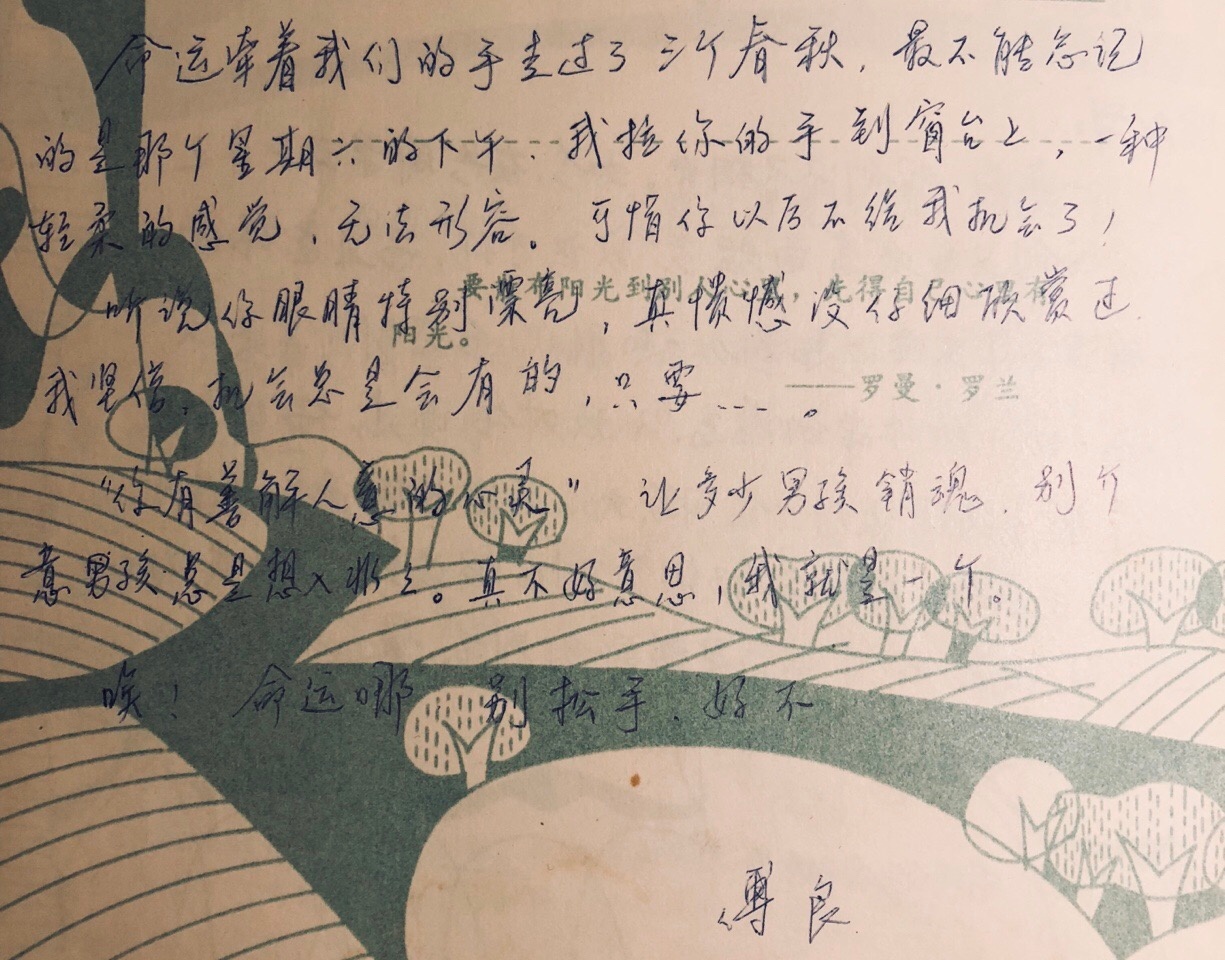 命运牵着我们的手走过了三个春秋，最不能忘记
的是那个星期六的下午，我拉你的手到窗台上，一种
轻柔的感觉，无法形容。可惜你以后不给我机会了！
要散布阳光到别人心里，先得自己心里有
阳光。
听说你眼睛特别漂亮，真愤憾没仔细欣赏过.
——罗曼·罗兰
我坚信，机会总是会有的，只要……。
“你有善解人意的心灵” 让多少男孩销魂，别介
意男孩总是想入非非。真不好意思，我就是一个。
唉！命运哪 别松手，好不
良